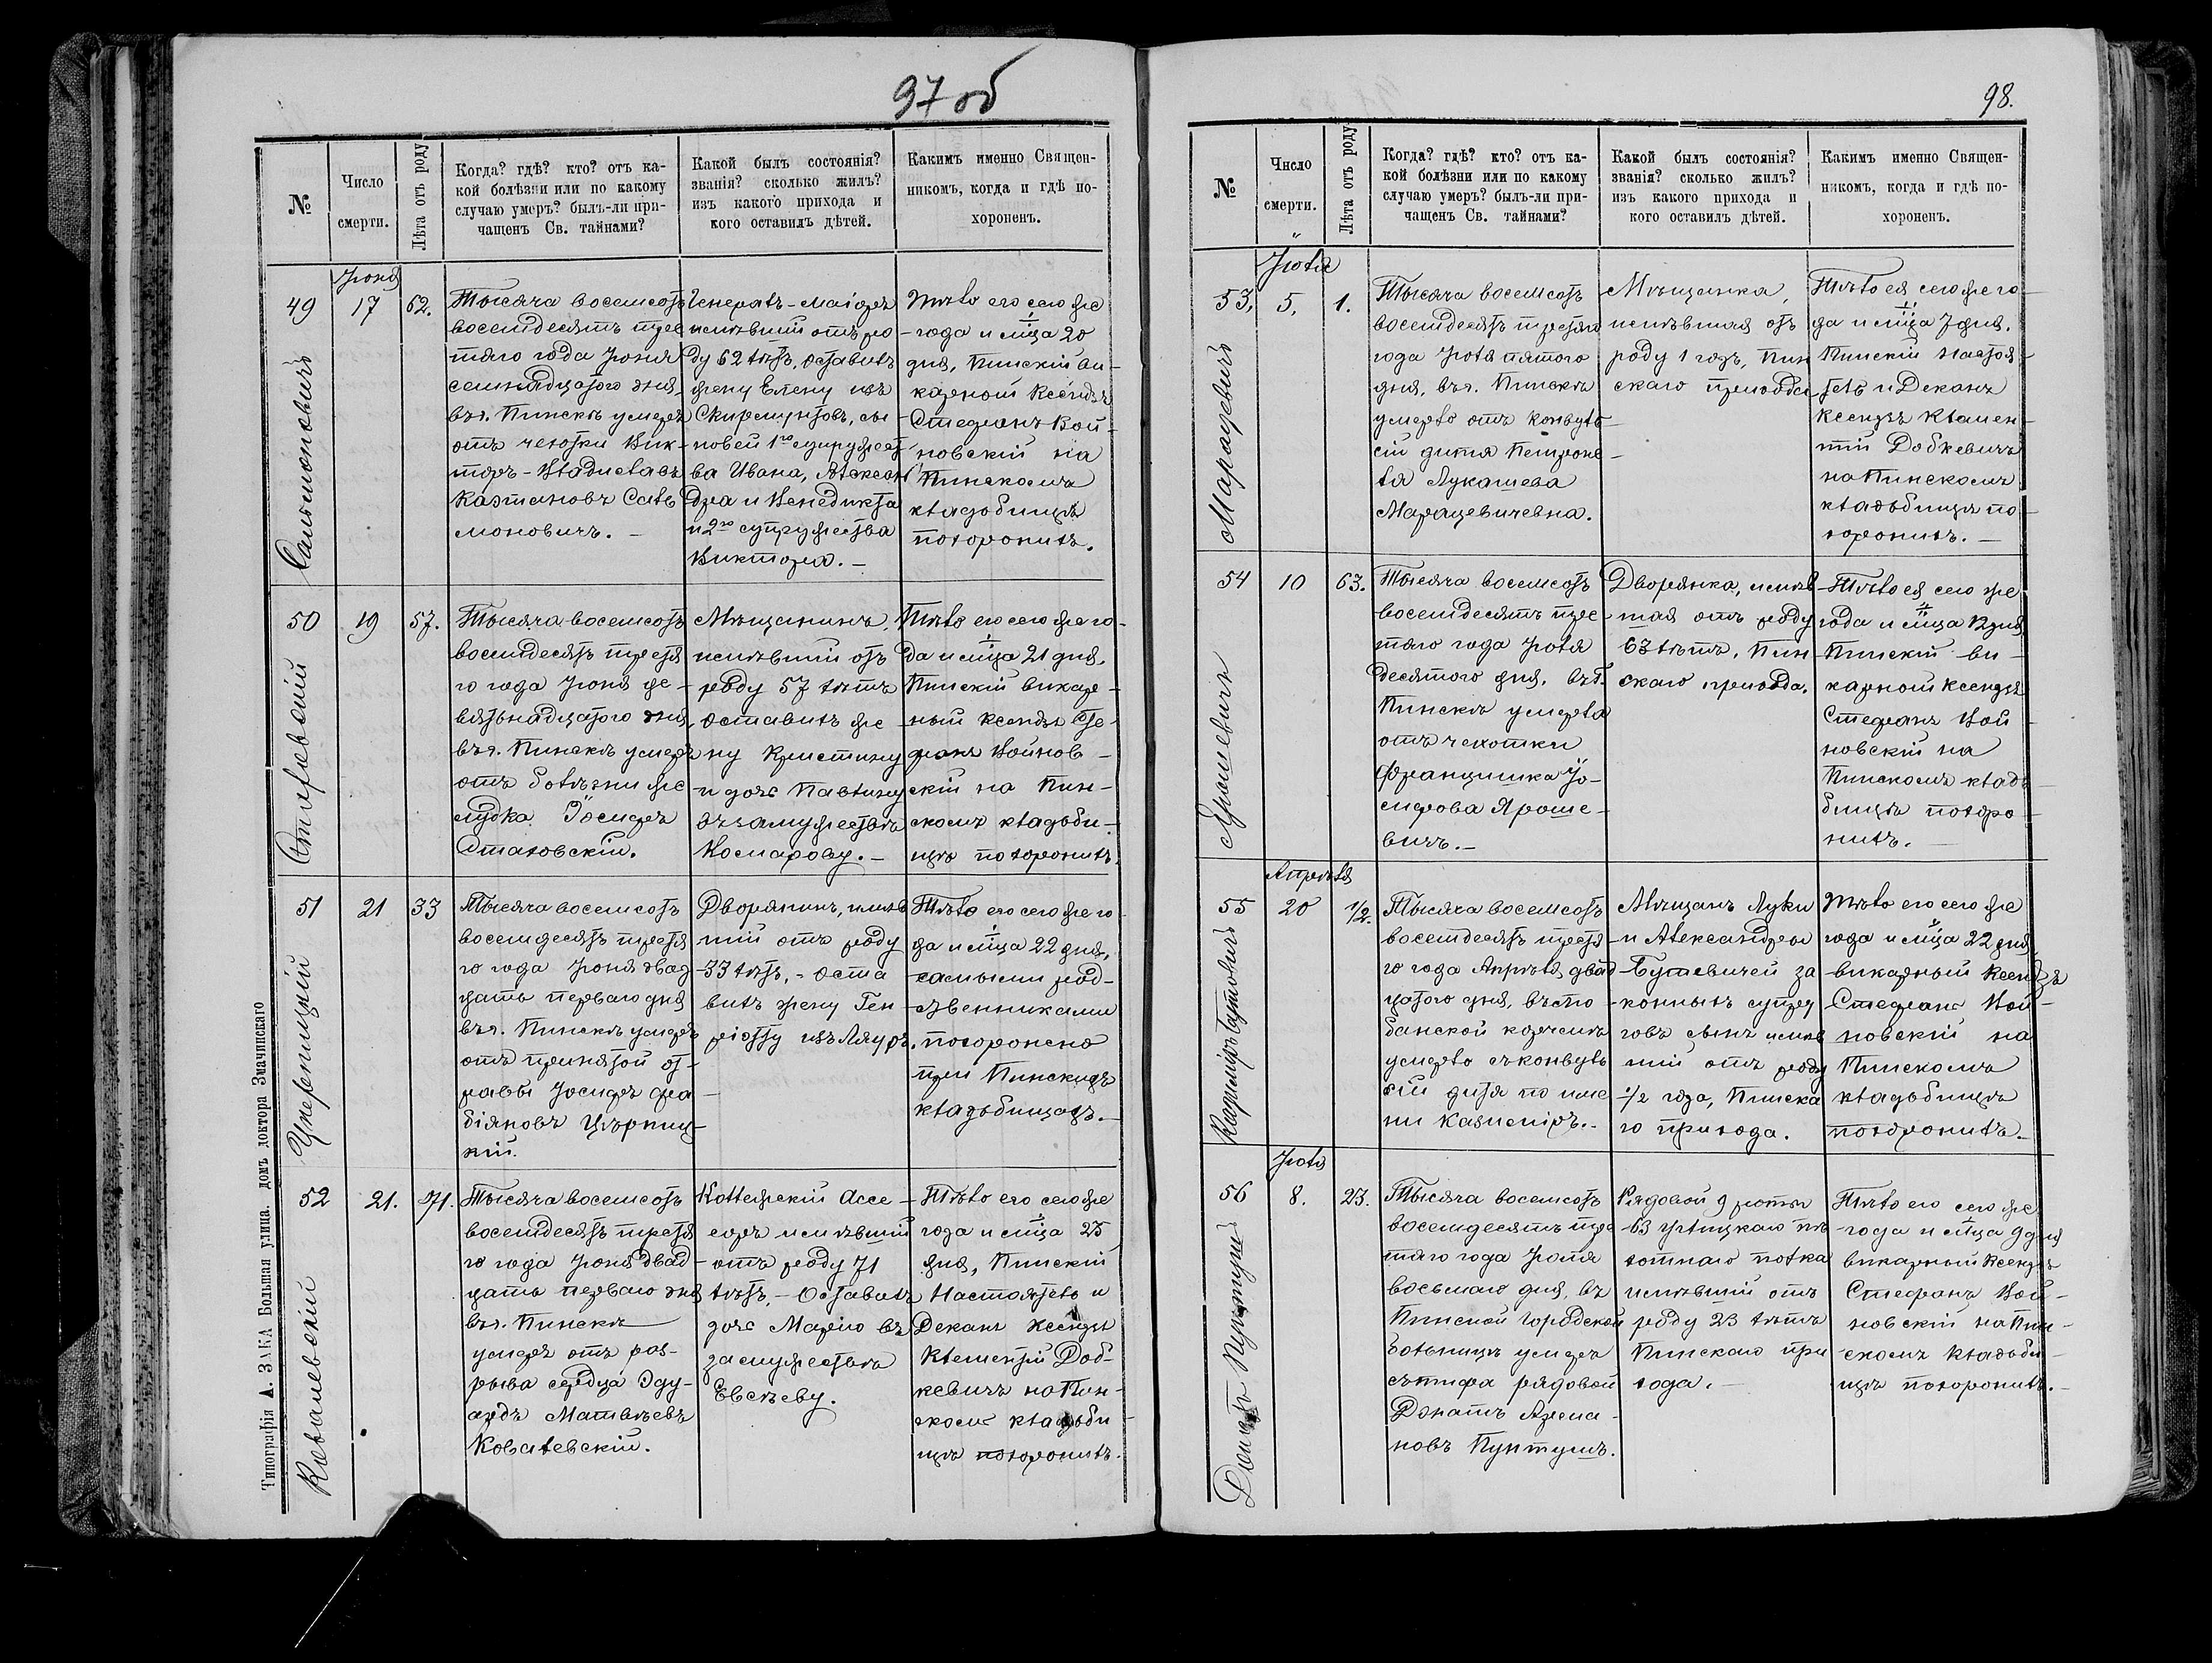 97 об
№
Число
смерти.
Лѣта отъ роду
Когда? гдѣ? кто? отъ ка-
кой болѣзни или по какому
случаю умеръ? былъ-ли при-
чащенъ Св. тайнами?
Какой былъ состоянія?
званія? сколько жилъ?
изъ какого прихода и
кого оставилъ дѣтей.
Какимъ именно Священ-
никомъ, когда и гдѣ по-
хороненъ.
Іюня
49
17
62.
Тысяча восемсотъ
восемдесятъ тре
тяго года Іюня
семнадцатого дня
въ г. Пинскѣ умеръ
отъ чехотки Вик-
торъ-Владиславъ
Каэтановъ Сале
моновичъ.
Генералъ-маіоръ
имѣвшій отъ ро
ду 62 лѣтъ, оставилъ
жену Елену изъ
Скирмунтовъ, сы
новей 1го супружест
ва Ивана, Алексан
дра и Венедикта
и 2го супружества
Виктора.
Тѣло его сего же
года и мца 20
дня, Пинскій ви-
карной Ксендзъ
Стефанъ Вой-
новскій на
Пинскомъ
кладбищѣ
похоронилъ.
50
19
57.
Тысяча восемсотъ
восемдесятъ третя
го года Іюня де-
вятьнадцатого дня
въ г. Пинскѣ умеръ
отъ болѣзни же
лудка Іосифъ
Стаховскій.
Мѣщанинъ,
имѣвшій отъ
роду 57 лѣтъ
оставилъ же
ну Кристину
и дочь Павлину
въ замужествѣ
Комарову.
Тѣло его сего же го-
да и мца 21 дня.
Пинскій викар-
ный Ксендзъ Сте
фанъ Войнов-
скій на Пин-
скомъ кладби-
щѣ похоронилъ.
51
21
33
Тысяча восемсотъ
восемдесятъ третя
го года Іюня двад
цать перваго дня
въ г. Пинскѣ умеръ
отъ принятой от-
равы Іосифъ Фа-
біяновъ Цѣрниц-
кій.
Дворянинъ, имѣв
шій отъ роду
33 лѣтъ, - оста
вилъ жену Ген
ріэтту изъ Ляуръ.
Тѣло его сего же го
да и мца 22 дня,
самыми род-
ственниками
похоронено
при Пинскихъ
кладбищахъ.
52
21.
71.
Тысяча восемсотъ
восемдесятъ третя
го года Іюня двад
цать перваго дня
въ г. Пинскѣ
умеръ отъ раз-
рыва сердца Эду-
ардъ Матвѣевъ
Ковалевскій.
Коллежскій Ассе-
соръ имѣвшій
отъ роду 71
лѣтъ, - Оставилъ
дочь Марію въ
замужествѣ
Евсѣеву.
Тѣло его сего же
года и мца 23
дня, Пинскій
Настоятель и
Деканъ Ксендзъ
Клементій Доб-
кевичъ на Пин-
скомъ кладби
щѣ похоронилъ.
Салямоновичъ
Стаховскій
Ковалевскій
Типографія А. ЗАКА Большая улица. домъ доктора Значинскаго
98.
№
Число
смерти.
Лѣта отъ роду
Когда? гдѣ? кто? отъ ка-
кой болѣзни или по какому
случаю умеръ? былъ-ли при-
чащенъ Св. тайнами?
Какой былъ состоянія?
званія? сколько жилъ?
изъ какого прихода и
кого оставилъ дѣтей.
Какимъ именно Священ-
никомъ, когда и гдѣ по-
хороненъ.
Іюля
53,
5,
1.
Тысяча восемсотъ
восемдесятъ третяго
года Іюля пятого
дня, въ г. Пинскѣ
умерло отъ конвуль-
сій дитя Петроне-
ля Лукашева
Марацевичевна.
Мѣщанка,
имѣвшая отъ
роду 1 годъ, Пин
скаго прихода
Тѣло ея сего же го-
да и мца 7 дня.
Пинскій Настоя-
тель и Деканъ
Ксендзъ Клемен-
тій Добкевичъ
на Пинскомъ
кладбищѣ по-
хоронилъ.
54
10
63.
Тысяча восемсотъ
восемдесятъ тре
тяго года Іюля
десятого дня, въ г.
Пинскѣ умерла
отъ чехотки
Францишка Іо-
сифова Яроше-
вичъ.
Дворянка, имѣв
шая отъ роду
63 лѣтъ, Пин
скаго прихода.
Тѣло ея сего же
года и мца 12 дня
Пинскій ви-
карной Ксендзъ
Стефанъ Вой
новскій на
Пинскомъ клад-
бищѣ похоро
нилъ.
Апрѣля
55
20
1/2.
Тысяча восемсотъ
восемдесятъ третя
го года Апрѣля двад
цатого дня, въ сто
банской корчемѣ
умерло съ конвуль
сій дитя по име
ни Казиміръ.
Мѣщанъ Луки
и Александры
Бутевичей за
конныхъ супру
говъ сынъ имѣв
шій отъ роду
1/2 года, Пинска
го прихода.
Тѣло его сего же
года и мца 22 дня
викарный Ксендзъ
Стефанъ Вой-
новскій на
Пинскомъ
кладбищѣ
похоронилъ.
Іюля
56
8.
23.
Тысяча восемсотъ
восемдесятъ тре
тяго года Іюля
восьмаго дня, въ
Пинской городской
больницѣ умеръ
съ тифа рядовой
Донатъ Арма-
новъ Пунтушъ.
Рядовой 9 роты
63 Углицкаго пѣ
хотнаго полка
имѣвшій отъ
роду 23 лѣтъ
Пинскаго при
хода.
Тѣло его сего же
года и мца 9 дня
викарный Ксендзъ
Стефанъ Вой-
новскій на Пин-
скомъ кладби-
щѣ похоронилъ.
Марацевичъ
Ярошевичъ